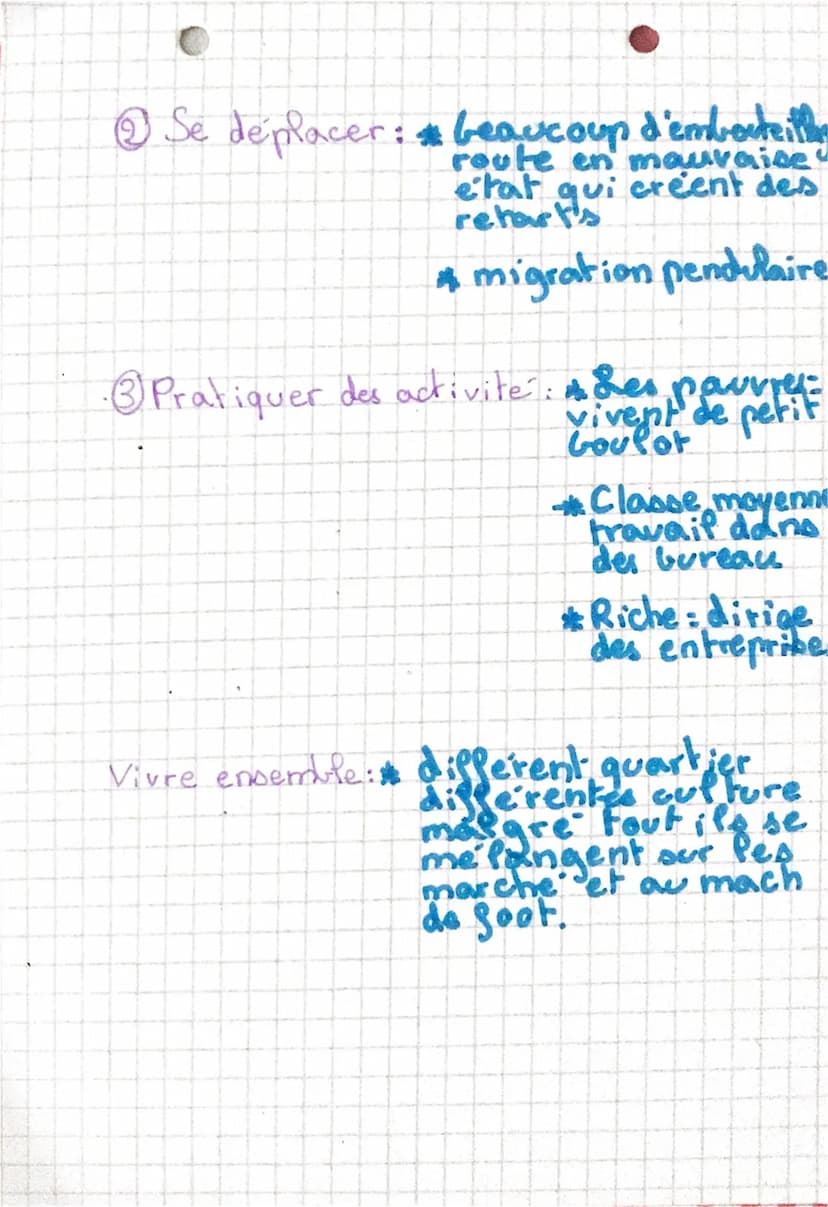 ② Se déplacer : * beaucoup d'embouteill
route en mauvaise
état qui créent des
retart's
* migration pendulaire
③ Pratiquer des activité : * Les pauvres =
vivent de petit
boulot
* Classe moyenn
travail dans
des bureau
* Riche = dirige
des entreprise
Vivre ensemble : * différent quartier
différentes culture
malgré tout ils se
mélangent sur les
marché et au mach
de foot.